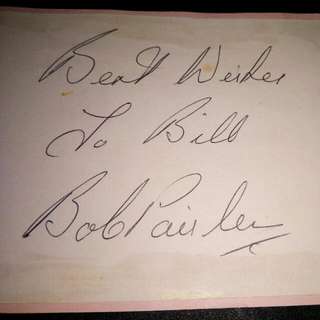 Best Wishes
To Bill
Bob Paisley